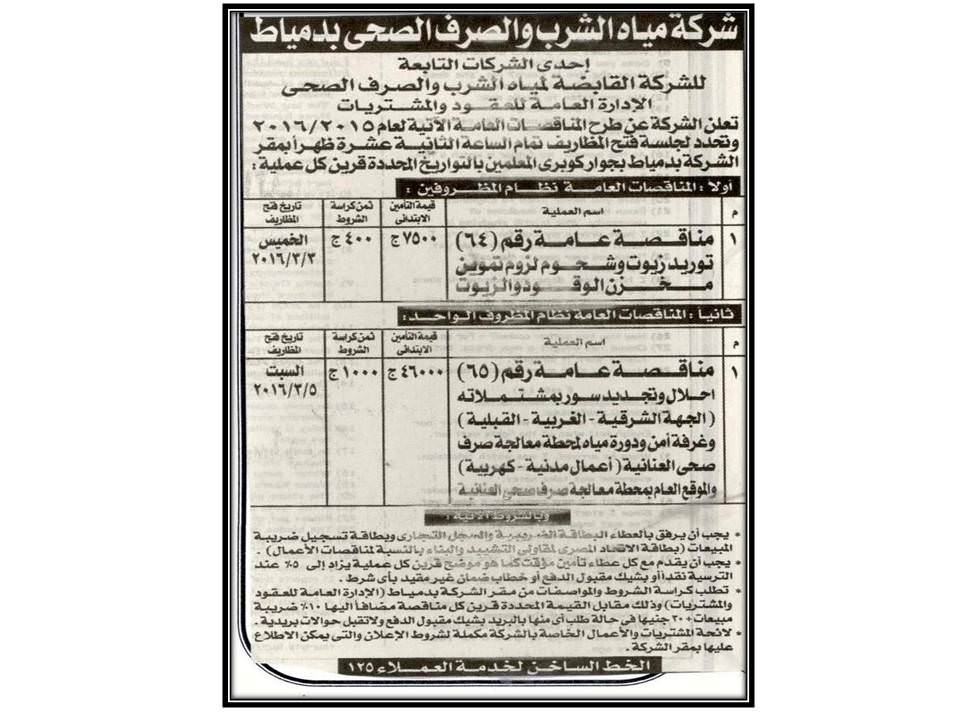 شركة مياه الشرب والصرف الصحى بدمياط
إحدى الشركات التابعة
للشركة القابضة لمياه الشرب والصرف الصحى
الإدارة العامة للعقود والمشتريات
تعلن الشركة عن طرح المناقصات العامة الآتية لعام ٢٠١٦/٢٠١٥
وتحدد لجلسة فتح المظاريف تمام الساعة الثانية عشرة ظهراً بمقر
الشركة بدمياط بجوار كوبرى المعلمين بالتواريخ المحددة قرين كل عملية :
أولا : المناقصات العامة نظام المظروفين :
م اسم العملية قيمة التأمين الابتدائى ثمن كراسة الشروط تاريخ فتح المظاريف
١ مناقصة عامة رقم (٦٤) ٧٥٠٠ ج ٤٠٠ ج الخميس
توريد زيوت وشحوم لزوم تموين ٢٠١٦/٣/٣
مخزن الوقود والزيوت
ثانيا : المناقصات العامة نظام المظروف الواحد:
م اسم العملية قيمة التأمين الابتدائى ثمن كراسة الشروط تاريخ فتح المظاريف
١ مناقصة عامة رقم (٦٥) ٤٦٠٠٠ ج ١٠٠٠ ج السبت
احلال وتجديد سور بمشتملاته ٢٠١٦/٣/٥
(الجهة الشرقية - الغربية - القبلية)
وغرفة أمن ودورة مياه لمحطة معالجة صرف
صحى العنانية (أعمال مدنية - كهربية)
والموقع العام بمحطة معالجة صرف صحى العنانية
وبالشروط الآتية :
• يجب أن يرفق بالعطاء البطاقة الضريبية والسجل التجارى وبطاقة تسجيل ضريبة
المبيعات (بطاقة الاتحاد المصرى لمقاولى التشييد والبناء بالنسبة لمناقصات الأعمال) .
• يجب أن يقدم مع كل عطاء تأمين مؤقت كما هو موضح قرين كل عملية يزاد إلى ٥٪ عند
الترسية نقداً أو بشيك مقبول الدفع أو خطاب ضمان غير مقيد بأى شرط .
• تطلب كراسة الشروط والمواصفات من مقر الشركة بدمياط (الإدارة العامة للعقود
والمشتريات) وذلك مقابل القيمة المحددة قرين كل مناقصة مضافاً اليها ١٠٪ ضريبة
مبيعات + ٣٠ جنيها فى حالة طلب أى منها بالبريد بشيك مقبول الدفع ولا تقبل حوالات بريدية .
• لائحة المشتريات والأعمال الخاصة بالشركة مكملة لشروط الإعلان والتى يمكن الاطلاع
عليها بمقر الشركة .
الخط الساخن لخدمة العملاء ١٢٥